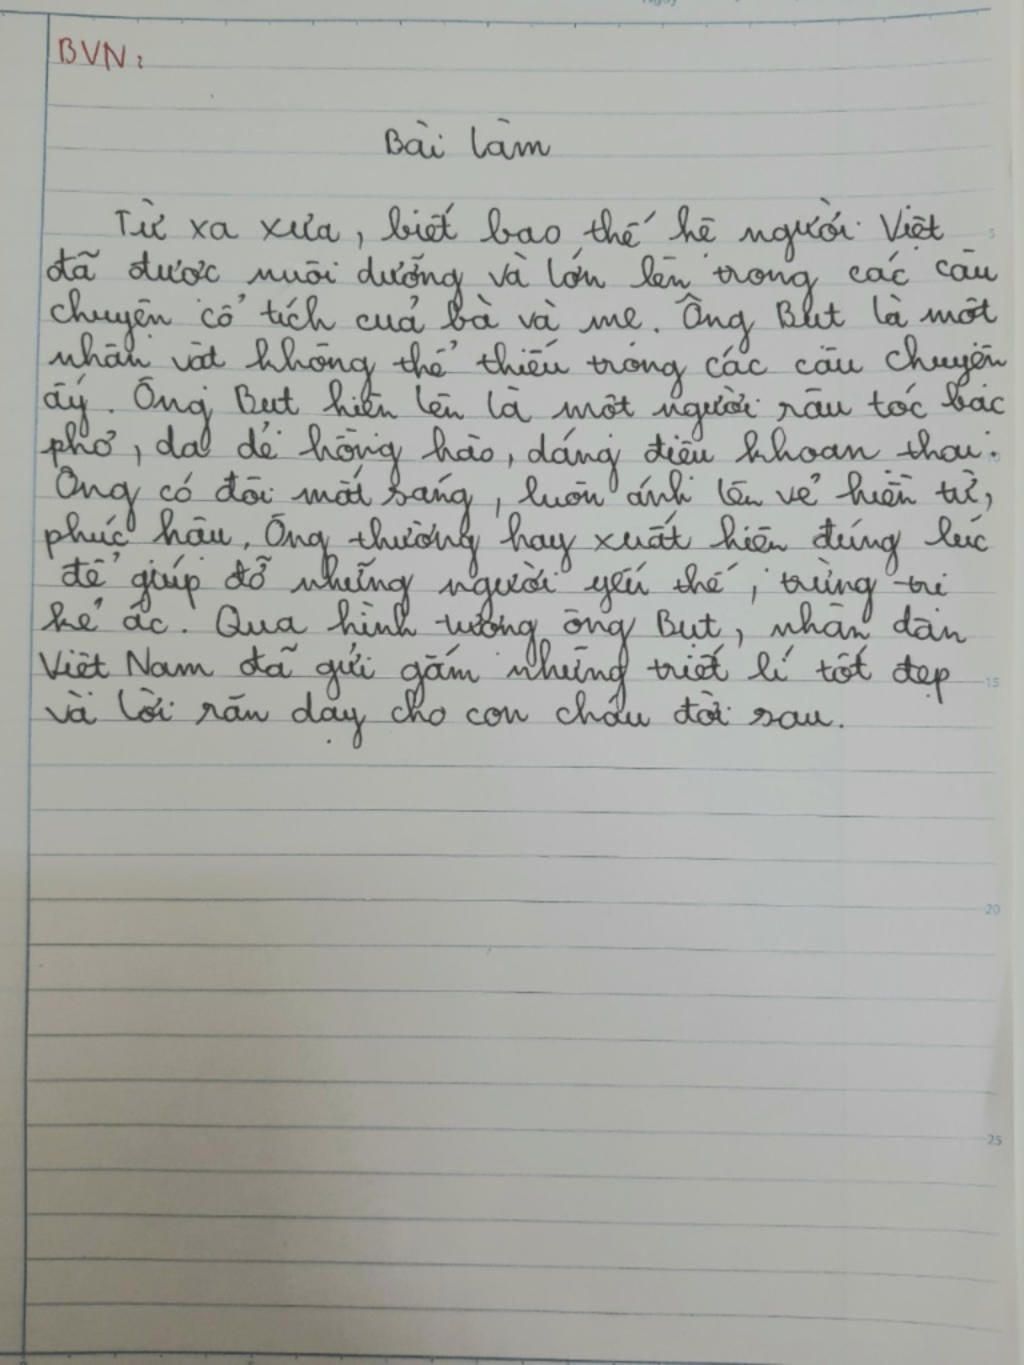 BVN:
Bài làm
Từ xa xưa, biết bao thế hệ người Việt
đã được nuôi dưỡng và lớn lên trong các câu
chuyện cổ tích của bà và mẹ. Ông Bụt là một
nhân vật không thể thiếu trong các câu chuyện
ấy. Ông Bụt hiện lên là một người râu tóc bạc
phơ, da dẻ hồng hào, dáng điệu khoan thai.
Ông có đôi mắt sáng, luôn ánh lên vẻ hiền từ,
phúc hậu. Ông thường hay xuất hiện đúng lúc
để giúp đỡ những người yếu thế, trừng trị
kẻ ác. Qua hình tượng ông Bụt, nhân dân
Việt Nam đã gửi gắm những triết lí tốt đẹp
và lời răn dạy cho con cháu đời sau.
15
20
25